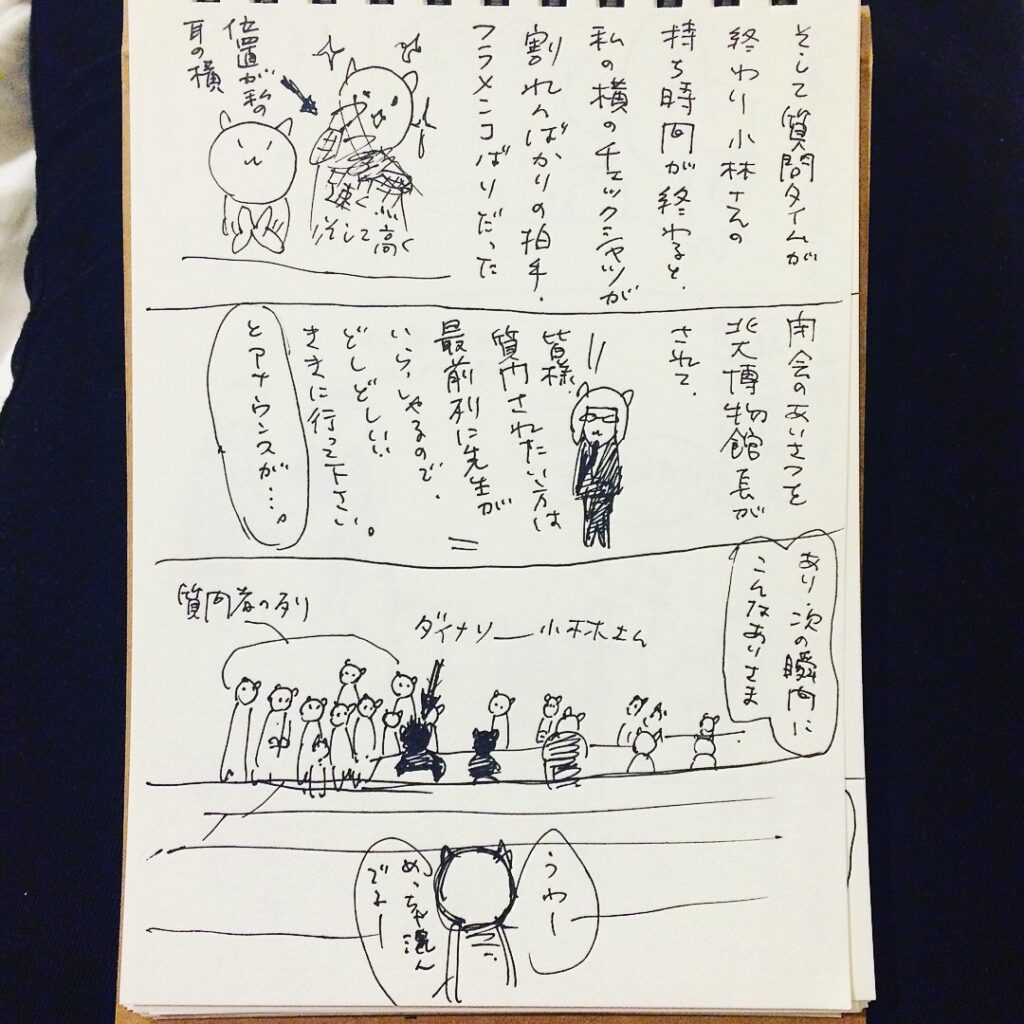 そして質問タイムが
終わり小林さんの
持ち時間が終わると、
私の横のチェックシャツが
割れんばかりの拍手、
フラメンコばりだった
位置が私の
耳の横
速く
そして高く
閉会のあいさつを
北大博物館長が
されて、
皆様、
質問されたい方は
最前列に先生が
いらっしゃるので、
どしどし
ききに行って下さい。
とアナウンスが…。
あり次の瞬間に
こんなありさま
質問者の列
ダイナソー小林さん
うわー
めっちゃ混ん
でるー